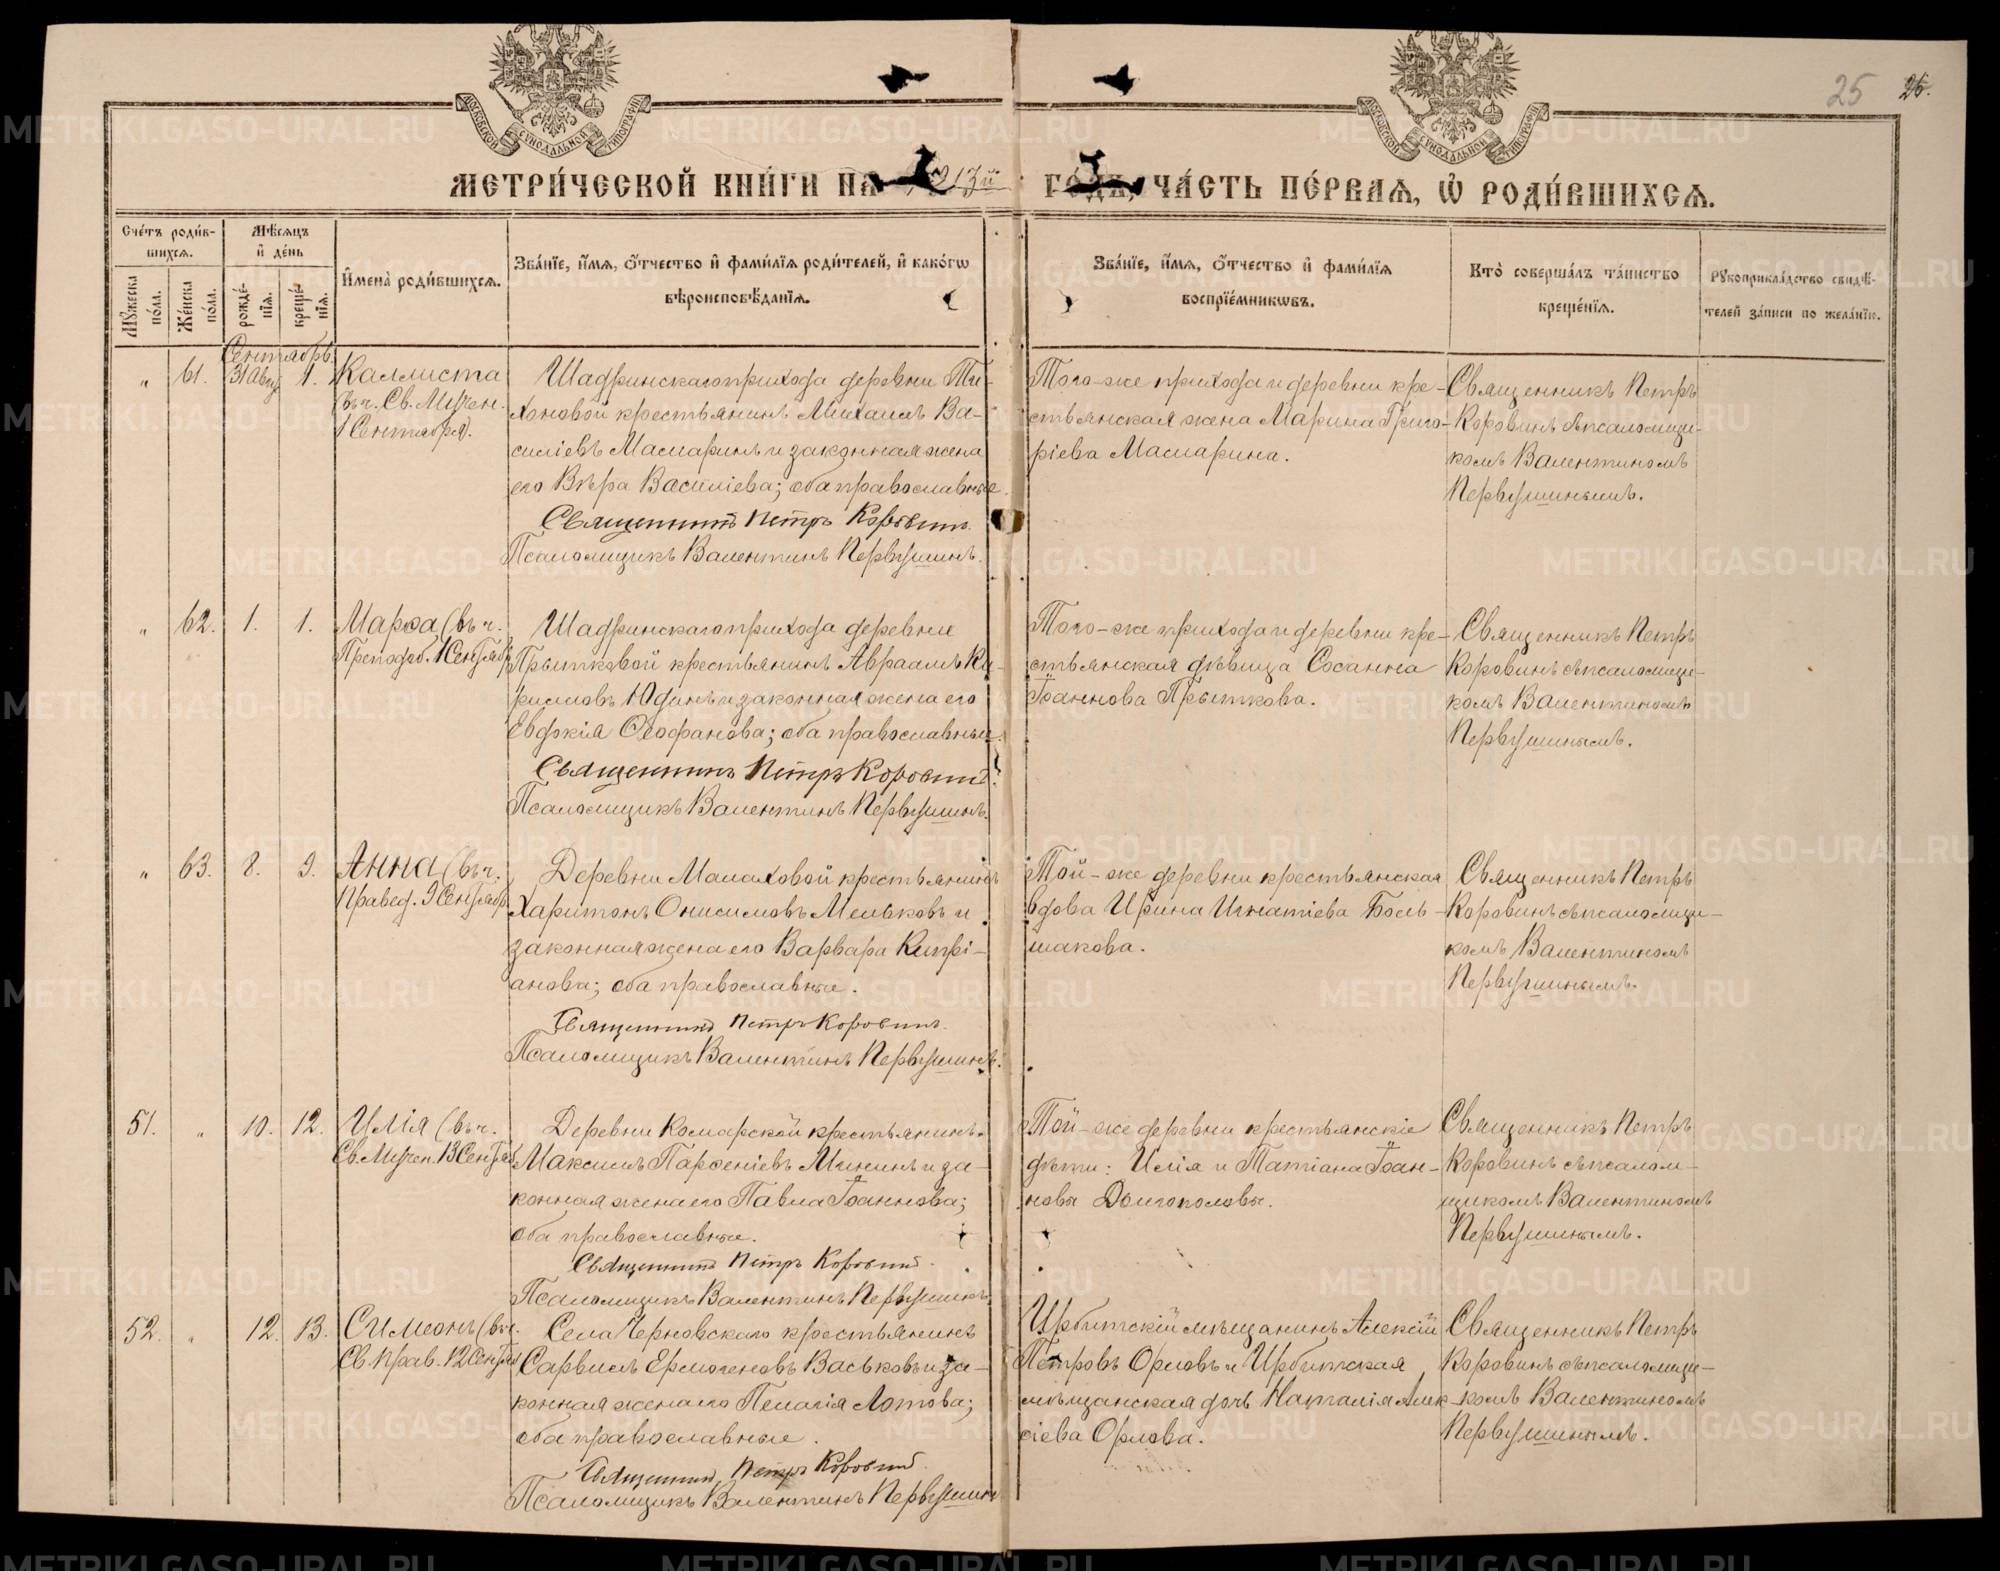 МОСКОВСКОЙ СѴНОДАЛЬНОЙ ТИПОГРАФІИ
МОСКОВСКОЙ СѴНОДАЛЬНОЙ ТИПОГРАФІИ
25 26.
МЕТРИ́ЧЕСКОЙ КНИ́ГИ НА 1913й ГО́ДЪ, ЧА́СТЬ ПЕ́РВАЯ, Ѡ РОДИ́ВШИХСЯ.
Сче́тъ роди́вшихся.
Му́жеска по́ла.
Же́нска по́ла.
Мѣ́сяцъ и де́нь
рожде́нія.
креще́нія.
Имена̀ роди́вшихся.
Зва́ніе, и́мя, о́тчество и фами́лія роди́телей, и како́гѡ
вѣроисповѣ́данія.
Зва́ніе, и́мя, о́тчество и фами́лія
воспріе́мниковъ.
Кто̀ соверша́лъ та́инство
креще́нія.
Рукоприкла́дство свидѣ́-
телей за́писи по жела́нію.
Сентябрь
„ 61. 31 Авг. 1.
Каллиста
въ ч. Св. Мучен.
1 Сентября).
Шадринскаго прихода деревни Ти-
хоновой крестьянинъ Михаилъ Ва-
силіевъ Мамаринъ и законная жена
его Вѣра Василіева; оба православные.
Священникъ Петръ Коровинъ.
Псаломщикъ Валентинъ Первушинъ.
Того-же прихода и деревни кре-
стьянская жена Марина Григо-
ріева Мамарина.
Священникъ Петръ
Коровинъ съ псаломщи-
комъ Валентиномъ
Первушинымъ.
„ 62. 1. 1.
Марѳа (въ ч.
Преподоб. 1 Сентябр.
Шадринскаго прихода деревни
Прытковой крестьянинъ Авраамъ Ки-
рилловъ Юдинъ и законная жена его
Евдокія Ѳеофанова; оба православные.
Священникъ Петръ Коровинъ.
Псаломщикъ Валентинъ Первушинъ.
Того-же прихода и деревни кре-
стьянская дѣвица Сосанна
Іоаннова Прыткова.
Священникъ Петръ
Коровинъ съ псаломщи-
комъ Валентиномъ
Первушинымъ.
„ 63. 8. 9.
Анна (въ ч.
Правед. 9 Сентябр.
Деревни Малаховой крестьянинъ
Харитонъ Онисимовъ Мельковъ и
законная жена его Варвара Кипрі-
анова; оба православные.
Священникъ Петръ Коровинъ.
Псаломщикъ Валентинъ Первушинъ.
Той-же деревни крестьянская
вдова Ирина Игнатіева Боль-
шакова.
Священникъ Петръ
Коровинъ съ псаломщи-
комъ Валентиномъ
Первушинымъ.
51. „ 10. 12.
Илія (въ ч.
Св. Мучен. 13 Сентяб.
Деревни Комарской крестьянинъ
Максимъ Парѳеніевъ Мининъ и за-
конная жена его Павла Іоаннова;
оба православные.
Священникъ Петръ Коровинъ.
Псаломщикъ Валентинъ Первушинъ.
Той-же деревни крестьянскіе
дѣти: Илія и Татіана Іоан-
новы Долгополовы.
Священникъ Петръ
Коровинъ съ псалом-
щикомъ Валентиномъ
Первушинымъ.
52. „ 12. 13.
Симеонъ (въ ч.
Св. Прав. 12 Сентяб.
Села Черновскаго крестьянинъ
Сарвилъ Ермогеновъ Васьковъ и за-
конная жена его Пелагія Лотова;
оба православные.
Священникъ Петръ Коровинъ.
Псаломщикъ Валентинъ Первушинъ
Ирбитскій мѣщанинъ Алексій
Петровъ Орловъ и Ирбитская
мѣщанская дочь Наталія Алек-
сіева Орлова.
Священникъ Петръ
Коровинъ съ псаломщи-
комъ Валентиномъ
Первушинымъ.
METRIKI.GASO-URAL.RU